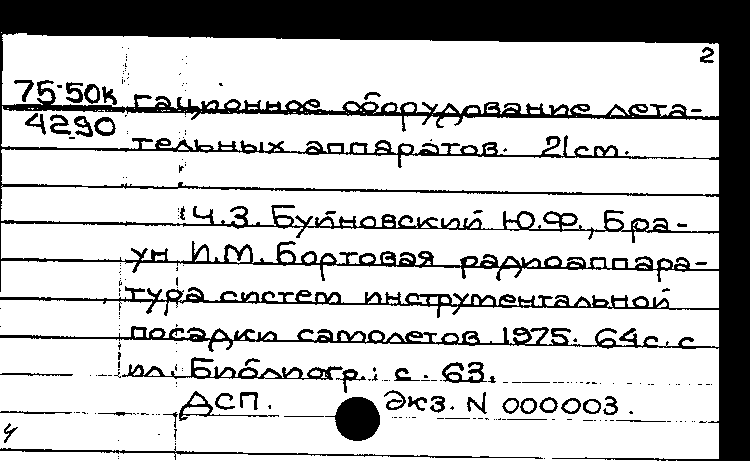 2
75-50к гационное оборудование лета-
4290 тельных аппаратов. 21 cm.
Ч.3. Буйновский Ю.Ф., Бра-
ун И.М. Бортовая радиоаппара-
тура систем инструментальной
посадки самолетов 1975. 64с. с
ил. Библиогр.: с. 63.
ДСП. Экз. N 000003.